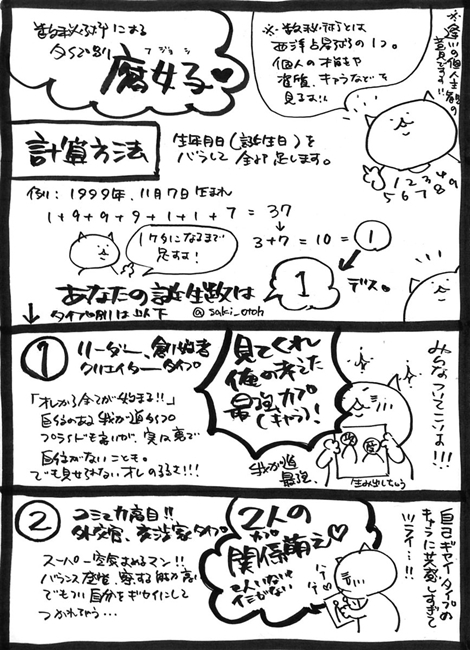 数秘術による
タイプ別
フジョシ
腐女子♥
※数秘術とは
西洋占星術の1つ。
個人の才能や
性質、キャラなどを
見るよ!!
計算方法
生年月日(誕生日)を
バラして全部足します。
1 2 3 4
5 6 7 8 9
例:1999年、11月7日生まれ
1+9+9+9+1+1+7=37
3+7=10=①
1ケタになるまで
足すよ!
あなたの誕生数は
1
デス。
タイプ別は以下
@saki_otoh
①
リーダー、創始者
クリエイタータイプ
「オレから全てが始まる!!」
自信のある我が道タイプ
プライドも高いが、実は裏で
自信がないことも。
でも見せられないオレのるるで!!!
見てくれ
俺の考えた
最強カプ
(キャラ)!
我が道
最強
みんなついてこいよ!!!
生み出しちゃう
②
コミュ力高目!!
外交官、交渉家タイプ
スーパー空気よめるマン!!
バランス座標、察する能力高い
でもつい自分をギセイにして
つかれちゃう…
2人の
カプ
関係萌え♡
2人いないと
イミがない
自己ギセイ、タイプの
キャラに共感しすぎて
ツライ…!!